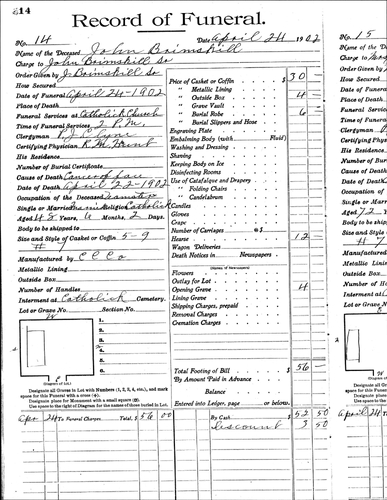 14
Record of Funeral.
No. 14 Date April 24 1902
Name of the Deceased John Brimskill
Charge to John Brimskill Sr
Order Given by J Brimskill Sr
How Secured
Date of Funeral April 24-1902
Place of Death
Funeral Services at Catholick Church
Time of Funeral Services 2 P.M.
Clergyman
Certifying Physician
His Residence
Number of Burial Certificate
Cause of Death Cancer of
Date of Death April 22-1902
Occupation of the Deceased Teamster
Single or Married Religion Catholick
Aged 48 Years, 6 Months, 2 Days.
Body to be shipped to
Size and Style of Casket or Coffin 5-9
Manufactured by C C Co
Metallic Lining
Outside Box
Number of Handles
Interment at Catholick Cemetery.
Lot or Grave No. Section No.
1.
2.
3.
4.
5.
6.
7.
8.
(Diagram of Lot.)
Designate all Graves in Lot with Numbers (1, 2, 3, 4, etc.), and mark
space for this Funeral with a cross (+).
Designate place for Monument with a small square
Use space to right of Diagram for the names of those buried in Lot.
Apr 24 To Funeral Charges, Total, $ 56 00
Price of Casket or Coffin $ 30 –
" Metallic Lining
" Outside Box 4
" Grave Vault
" Burial Robe 6 –
" Burial Slippers and Hose
Engraving Plate
Embalming Body (with Fluid)
Washing and Dressing
Shaving
Keeping Body on Ice
Disinfecting Rooms
Use of Catafalque and Drapery
" Folding Chairs
" Candelabrum
Candles
Gloves
Crape
Number of Carriages @ $
Hearse 12 –
Wagon Deliveries
Death Notices in Newspapers
(Names of Newspapers)
Flowers
Outlay for Lot
Opening Grave 4
Lining Grave
Shipping Charges, prepaid
Personal Charges
Cremation Charges
Total Footing of Bill $ 56 –
By Amount Paid in Advance
Balance
Entered into Ledger, page or below.
By Cash 52 50
Discount 3 50
No. 15
Name of the
Charge to
Order Given
How Secured
Date of Funeral
Place of Death
Funeral Services
Time of Funeral
Clergyman
Certifying Ph
His Residence
Number of Bu
Cause of Death
Date of Death
Occupation of
Single or Marr
Aged 72 Ye
Body to be ship
Size and Style
Manufactured
Metallic Lining
Outside Box
Number of Ha
Interment at
Lot or Grave N
(Diagram of
Designate all
space for this Fun
Designate place
Use space to rig
April 24 To Fun